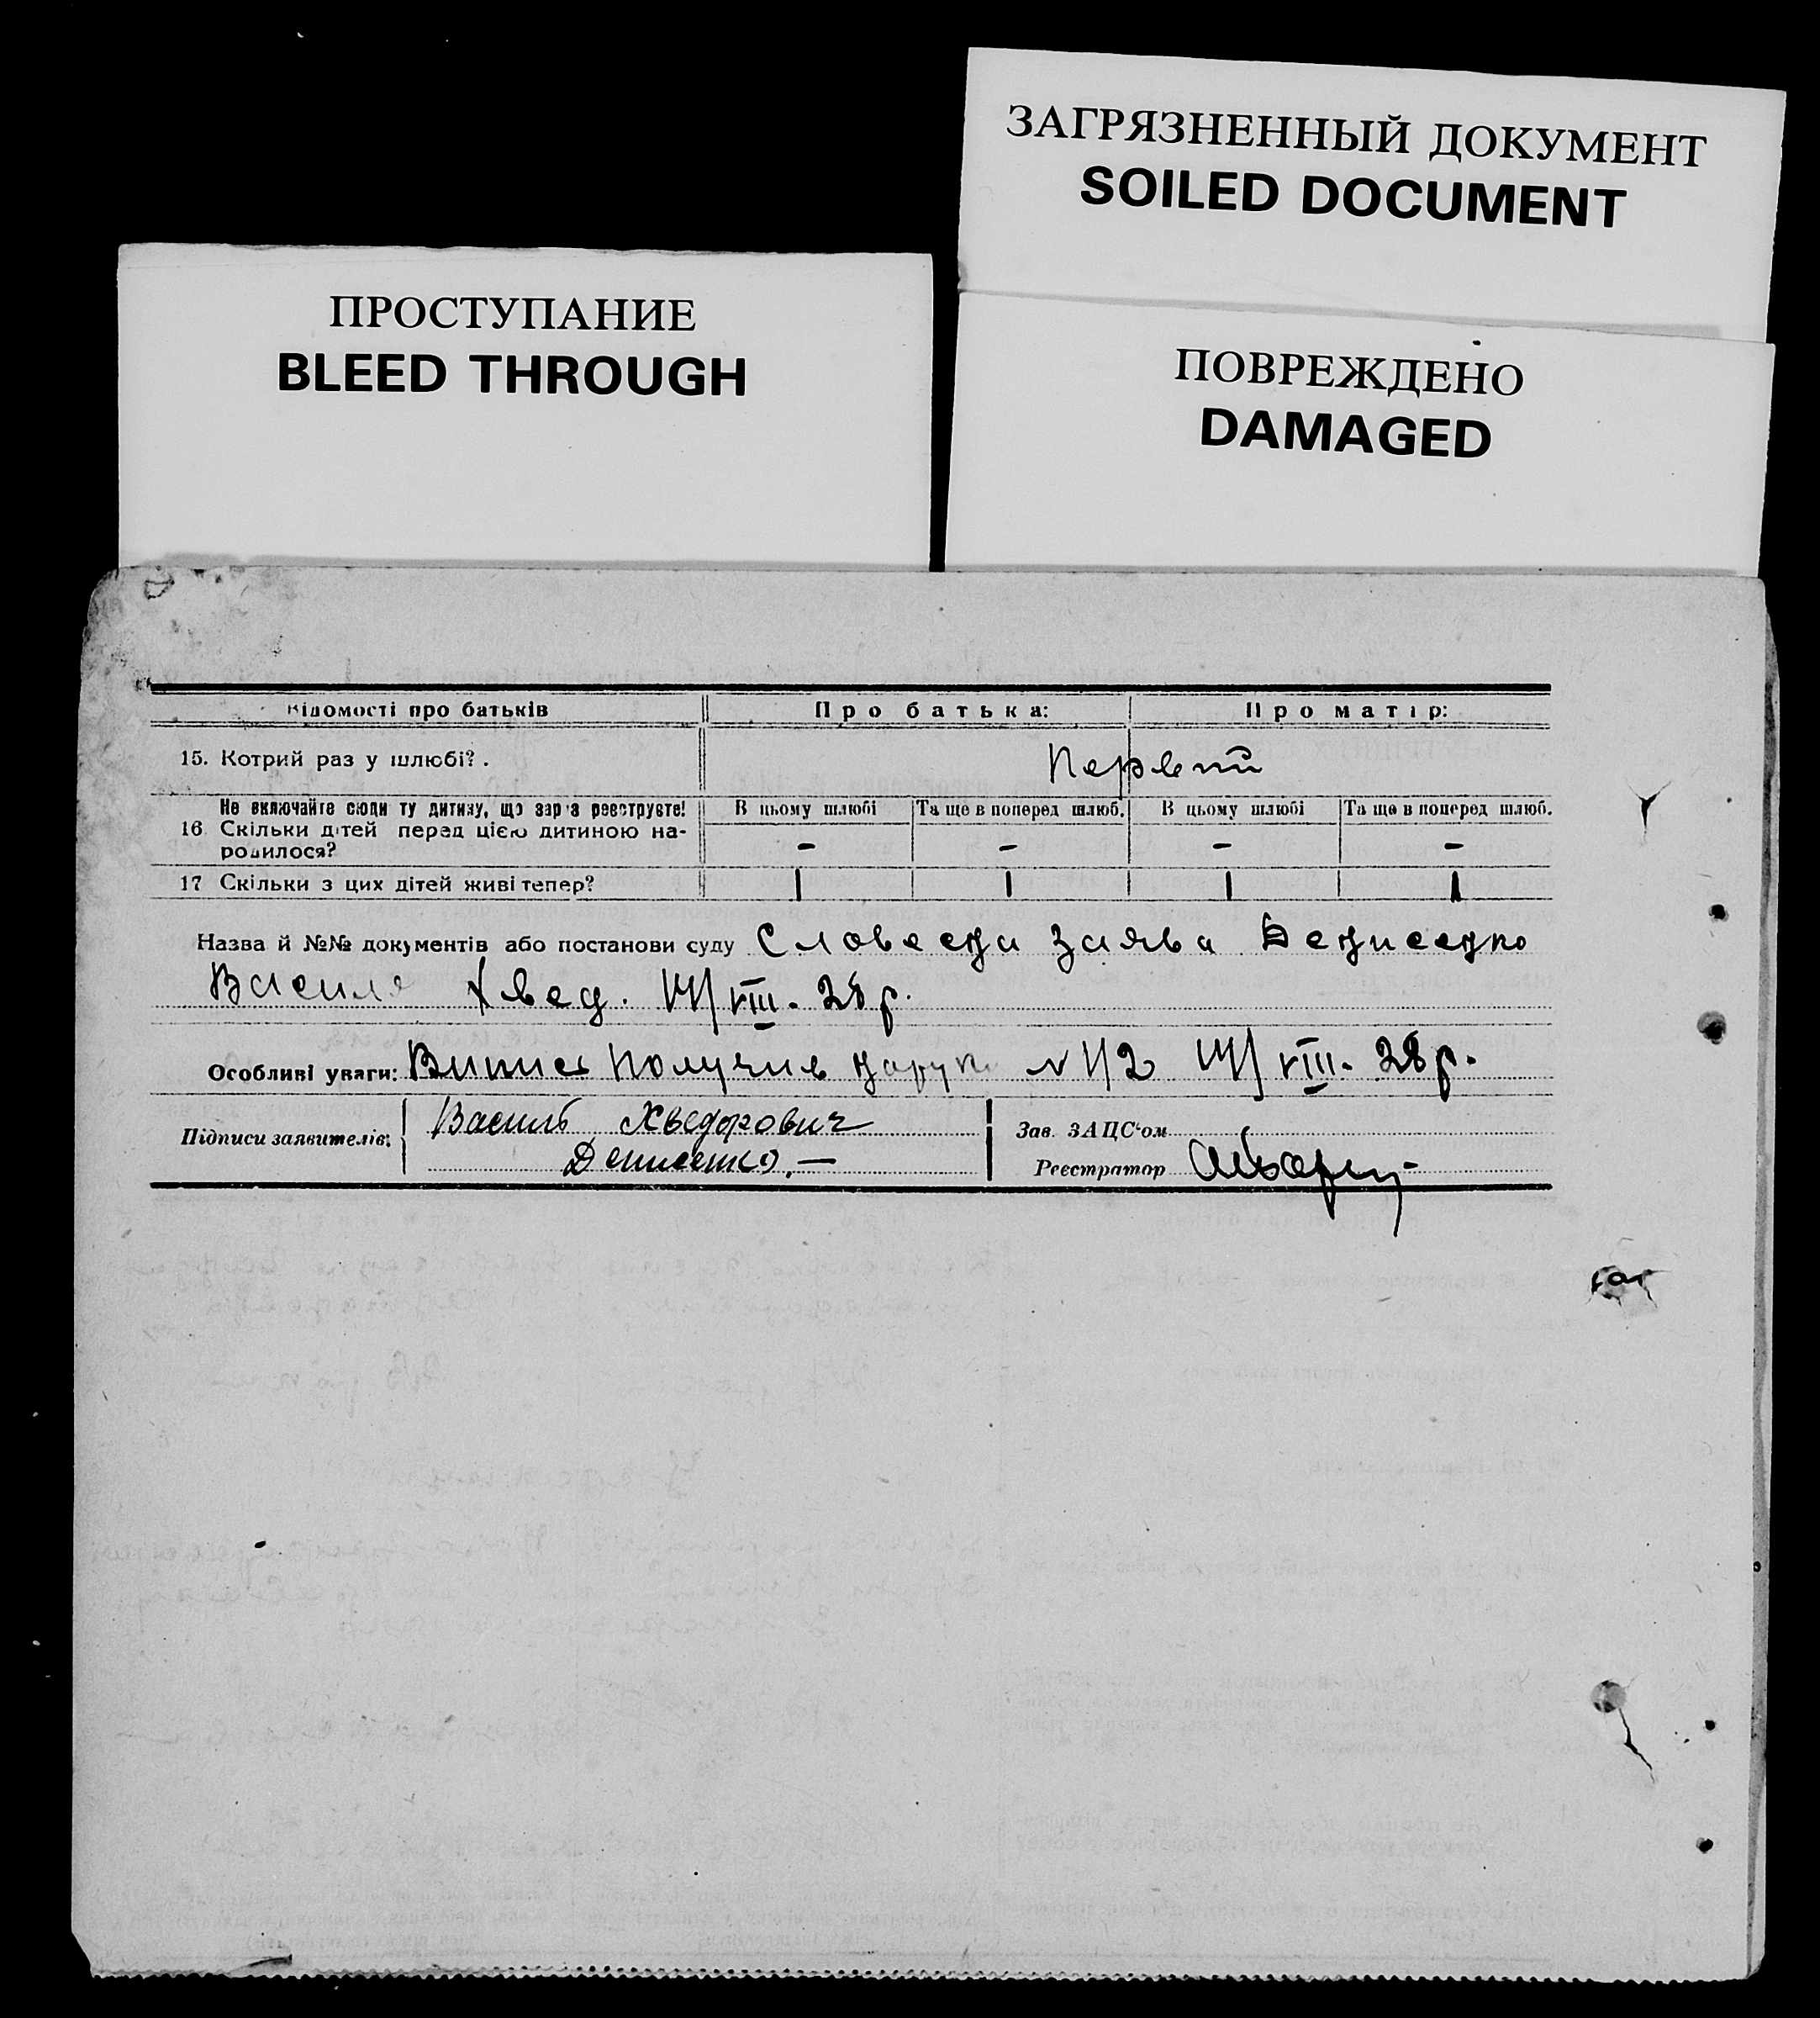 ЗАГРЯЗНЕННЫЙ ДОКУМЕНТ
SOILED DOCUMENT
ПРОСТУПАНИЕ
BLEED THROUGH
ПОВРЕЖДЕНО
DAMAGED
Відомості про батьків Про батька: Про матір:
15. Котрий раз у шлюбі?. Первий
Не включайте сюди ту дитину, що зараз реєструєте! В цьому шлюбі Та ще в поперед шлюб. В цьому шлюбі Та ще в поперед шлюб.
16 Скільки дітей перед цією дитиною на-
родилося? – – – –
17 Скільки з цих дітей живі тепер? | | | |
Назва й №№ документів або постанови суду Словесна заява Денисенко
Василя Хвед. VIII. 28 р.
Особливі уваги: Випис получив N 112 VIII. 28 р.
Підписи заявителів: Василь Хведорович
Денисенко. —
Зав. ЗАЦС'ом
Реєстратор